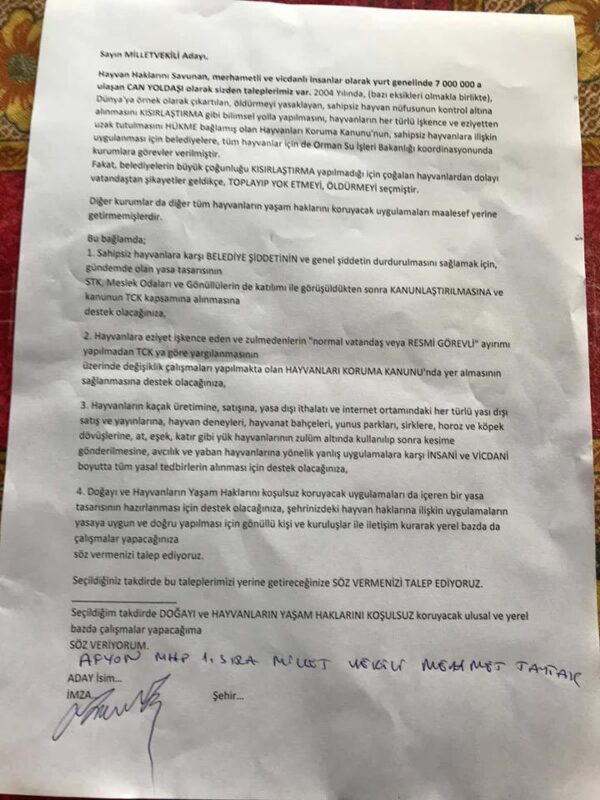 Sayın MİLLETVEKİLİ Adayı,
Hayvan Haklarını Savunan, merhametli ve vicdanlı insanlar olarak yurt genelinde 7 000 000 a
ulaşan CAN YOLDAŞI olarak sizden taleplerimiz var. 2004 Yılında, (bazı eksikleri olmakla birlikte),
Dünya'ya örnek olarak çıkartılan, öldürmeyi yasaklayan, sahipsiz hayvan nüfusunun kontrol altına
alınmasını KISIRLAŞTIRMA gibi bilimsel yolla yapılmasını, hayvanların her türlü işkence ve eziyetten
uzak tutulmasını HÜKME bağlamış olan Hayvanları Koruma Kanunu'nun, sahipsiz hayvanlara ilişkin
uygulanması için belediyelere, tüm hayvanlar için de Orman Su İşleri Bakanlığı koordinasyonunda
kurumlara görevler verilmiştir.
Fakat, belediyelerin büyük çoğunluğu KISIRLAŞTIRMA yapılmadığı için çoğalan hayvanlardan dolayı
vatandaştan şikayetler geldikçe, TOPLAYIP YOK ETMEYİ, ÖLDÜRMEYİ seçmiştir.
Diğer kurumlar da diğer tüm hayvanların yaşam haklarını koruyacak uygulamaları maalesef yerine
getirmemişlerdir.
Bu bağlamda;
1. Sahipsiz hayvanlara karşı BELEDİYE ŞİDDETİNİN ve genel şiddetin durdurulmasını sağlamak için,
gündemde olan yasa tasarısının
STK, Meslek Odaları ve Gönüllülerin de katılımı ile görüşüldükten sonra KANUNLAŞTIRILMASINA ve
kanunun TCK kapsamına alınmasına
destek olacağınıza,
2. Hayvanlara eziyet işkence eden ve zulmedenlerin "normal vatandaş veya RESMİ GÖREVLİ" ayırımı
yapılmadan TCK ya göre yargılanmasının
üzerinde değişiklik çalışmaları yapılmakta olan HAYVANLARI KORUMA KANUNU'nda yer almasının
sağlanmasına destek olacağınıza,
3. Hayvanların kaçak üretimine, satışına, yasa dışı ithalatı ve internet ortamındaki her türlü yası dışı
satış ve yayınlarına, hayvan deneyleri, hayvanat bahçeleri, yunus parkları, sirklere, horoz ve köpek
dövüşlerine, at, eşek, katır gibi yük hayvanlarının zulüm altında kullanılıp sonra kesime
gönderilmesine, avcılık ve yaban hayvanlarına yönelik yanlış uygulamalara karşı İNSANİ ve VİCDANİ
boyutta tüm yasal tedbirlerin alınması için destek olacağınıza,
4. Doğayı ve Hayvanların Yaşam Haklarını koşulsuz koruyacak uygulamaları da içeren bir yasa
tasarısının hazırlanması için destek olacağınıza, şehrinizdeki hayvan haklarına ilişkin uygulamaların
yasaya uygun ve doğru yapılması için gönüllü kişi ve kuruluşlar ile iletişim kurarak yerel bazda da
çalışmalar yapacağınıza
söz vermenizi talep ediyoruz.
Seçildiğiniz takdirde bu taleplerimizi yerine getireceğinize SÖZ VERMENİZİ TALEP EDİYORUZ.
Seçildiğim takdirde DOĞAYI ve HAYVANLARIN YAŞAM HAKLARINI KOŞULSUZ koruyacak ulusal ve yerel
bazda çalışmalar yapacağıma
SÖZ VERİYORUM.
AFYON MHP 1. SIRA MİLLET VEKİLİ MEHMET TAYTAK
ADAY İsim...
İMZA... Şehir...